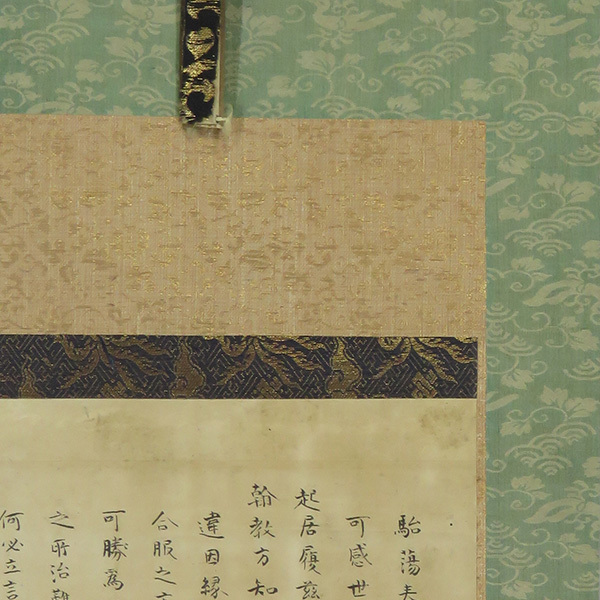 駘蕩
可感世
起居履
翰教方知
違因縁
合服之
可勝爲
之所治
何必立言